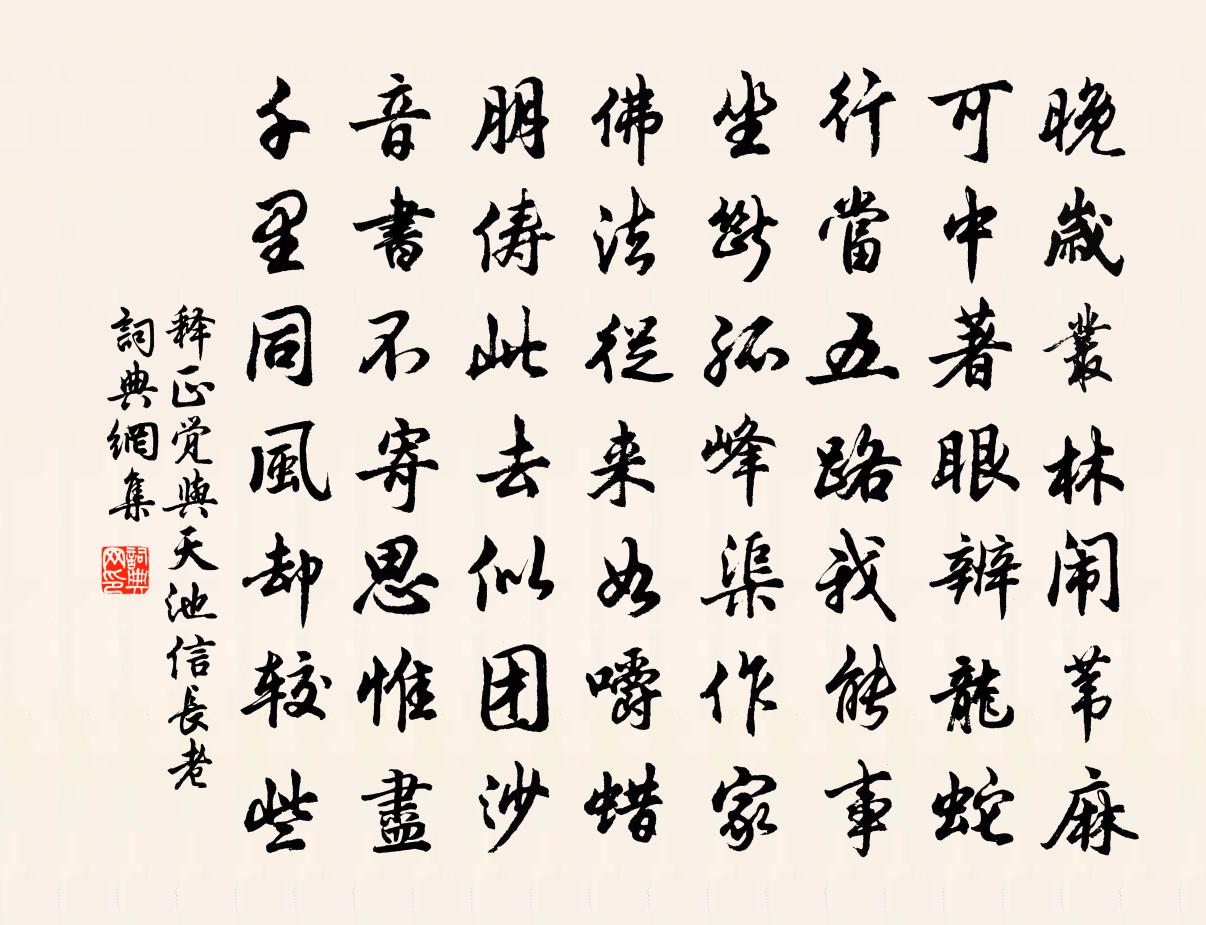 晚歲叢林闹苇麻
可中著眼辨龍蛇
行當五路我能事
坐斷孤峰渠作家
佛法從来如嚼蜡
朋俦此去似团沙
音書不寄思惟盡
千里同風却較些
释正觉與天池信長老
詞典網集
詞典网印